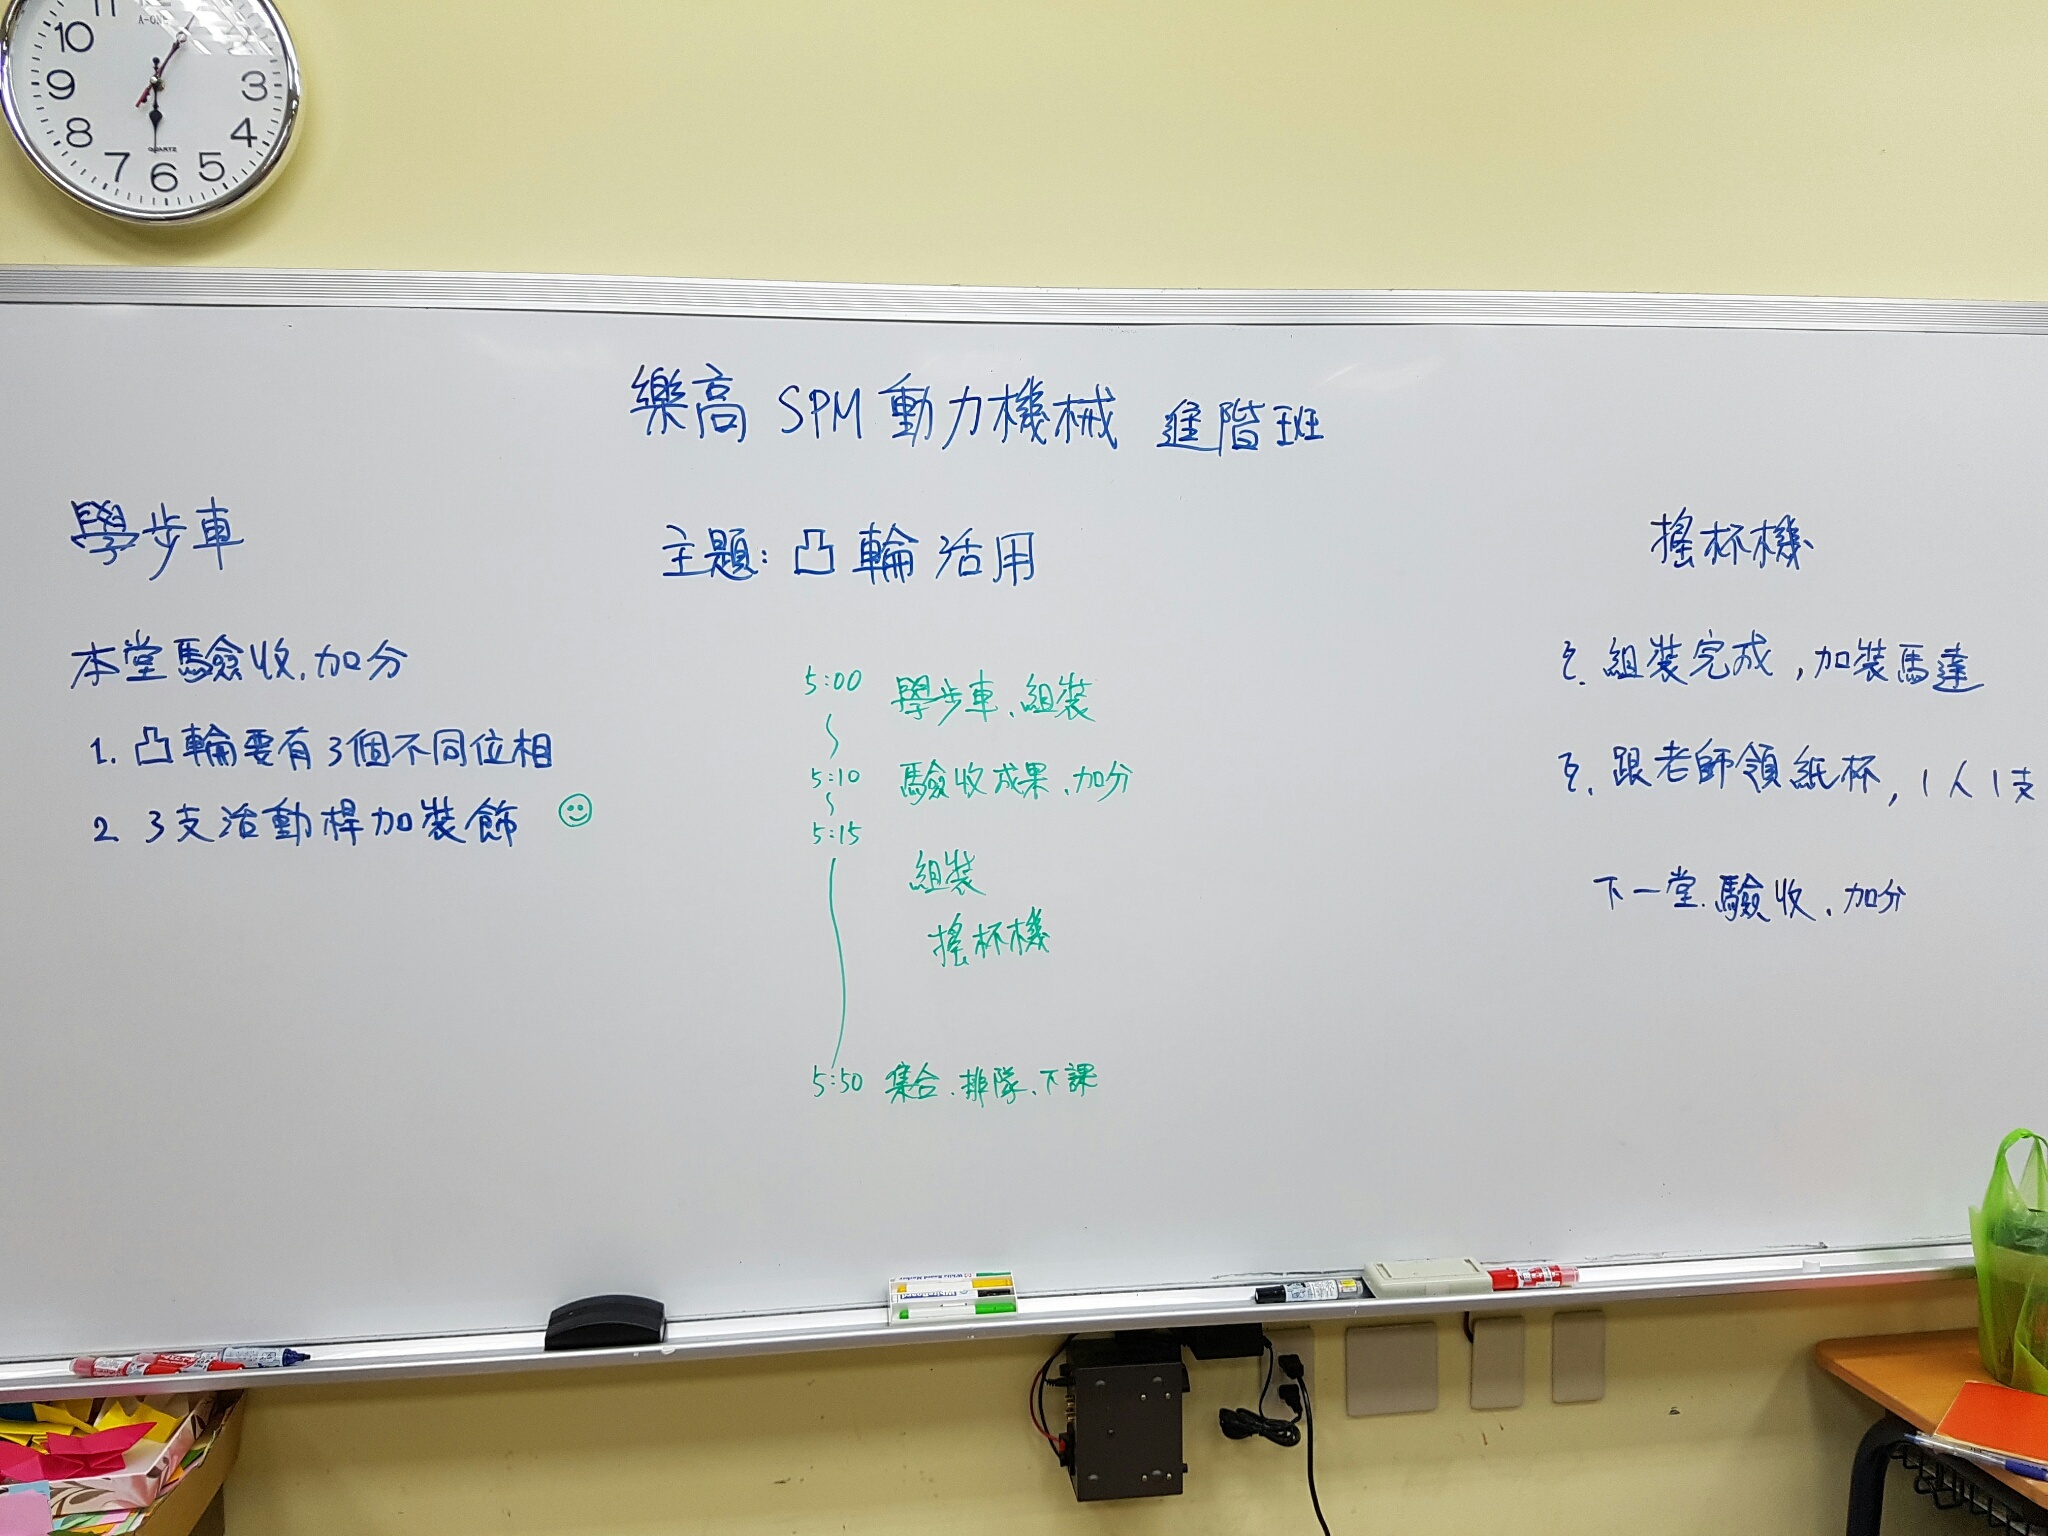 11
10
9
8
7
6
5
4
3
A-ONE
QUARTZ
樂高 SPM 動力機械 進階班
學步車
本堂驗收、加分
1. 凸輪要有3個不同位相
2. 3支活動桿加裝飾
主題: 凸輪活用
5:00 學步車、組裝
5:10 驗收成果、加分
5:15
組裝
搖杯機
5:50 集合、排隊、下課
搖杯機
組裝完成，加裝馬達
跟老師領紙杯，1人1支
下一堂、驗收、加分